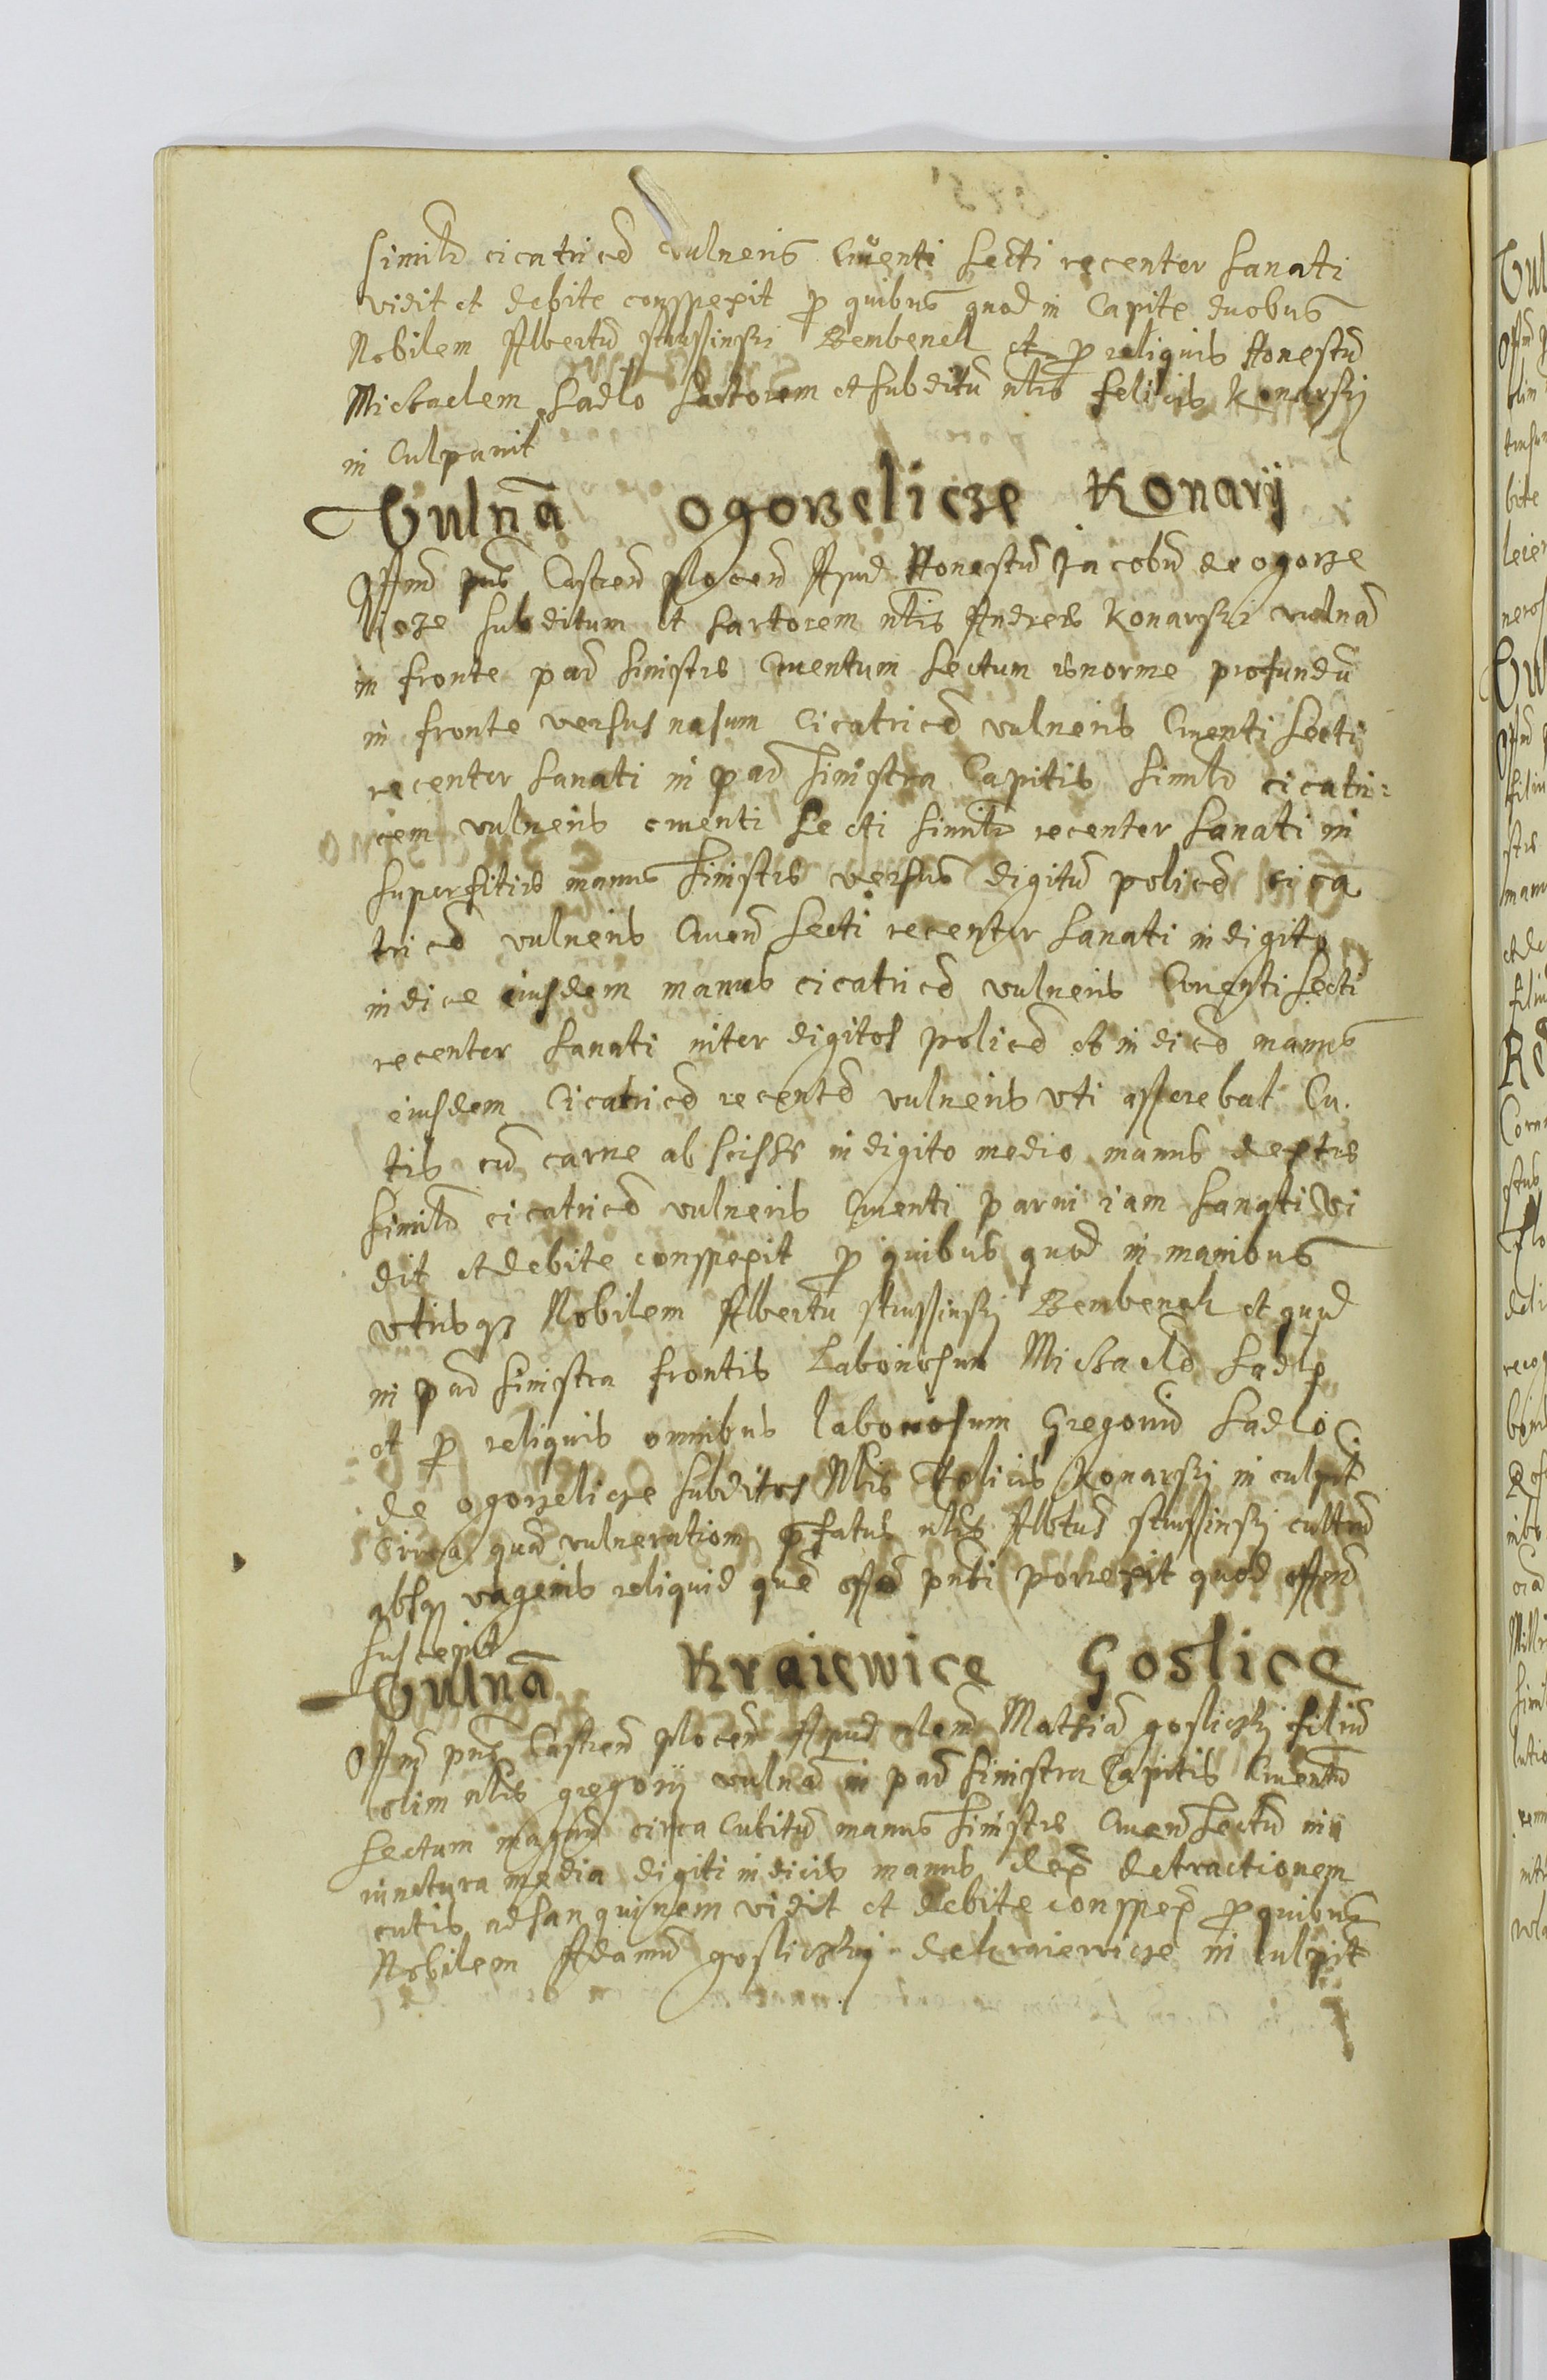 similr cicatricē vulneris Cruenti secti recenter sanati
vidit et debite conspexit p quibus quod in Capite duobus
Nobilem Albertū strussinski Bembenek et p reliquis Honestū
Michaelem Sadlo Sartorem et subditū nlis felicis Konarskj
in Culpauit
Vulnā ogorzelicze Konarÿ
Offim pns Castren plocen Apud Honestū Jacobū de ogorze
licze subditum et sartorem nlis Andreæ Konarskj vulnā
in fronte par sinistra Cruentum sectum enorme profundū
in fronte versus nasum Cicatricē vulneris Cruenti secti
recenter sanati in par sinistra Capitis similr cicatri:
cem vulneris cruenti secti similr recenter sanati in
superfitie manus sinistræ versus digitū policē cica
tricē vulneris Cruen secti recenter sanati in digito
indice eiusdem manus cicatricē vulneris Cruenti secti
recenter sanati inter digitos policē et indicē manus
eiusdem Cicatricē recentē vulneris vti asserebat Cu
tis cū carne abscissæ in digito medio manus dextræ
similr cicatricē vulneris Cruenti parui iam sanati vi
dit et debite conspexit p quibus quod in manibus
vtrisqz Nobilem Albertū strussinskj Bembenek et quod
in par sinistra frontis Laboriosum Michaelē Sadlo
et p reliquis omnibus laboriosum Gregoriū Sadlo
de ogorzelicze subditos Nlis Felicis Konarskj in culpit
Circa quā vulneration pfatus nlis Albtus strussinskj cultrū
absqz vagenis reliquid quē offo pnti porrexit quod offm
suscepit
Vulnā Kraiewice Goslice
Offim pns Castren plocen Apud nlem Mathiā gosliczkj filiū
olim nlis gregorij vulnā in par sinistra Capitis Cruentū
sectum magnū circa Cubitū manus sinistræ Cruen sectū in
iunctura media digiti indicis manus dex detractionem
cutis ad sanguinem vidit et debite conspex p quibus
Nobilem Adamū gosliczkj de kraiewicze in culpit